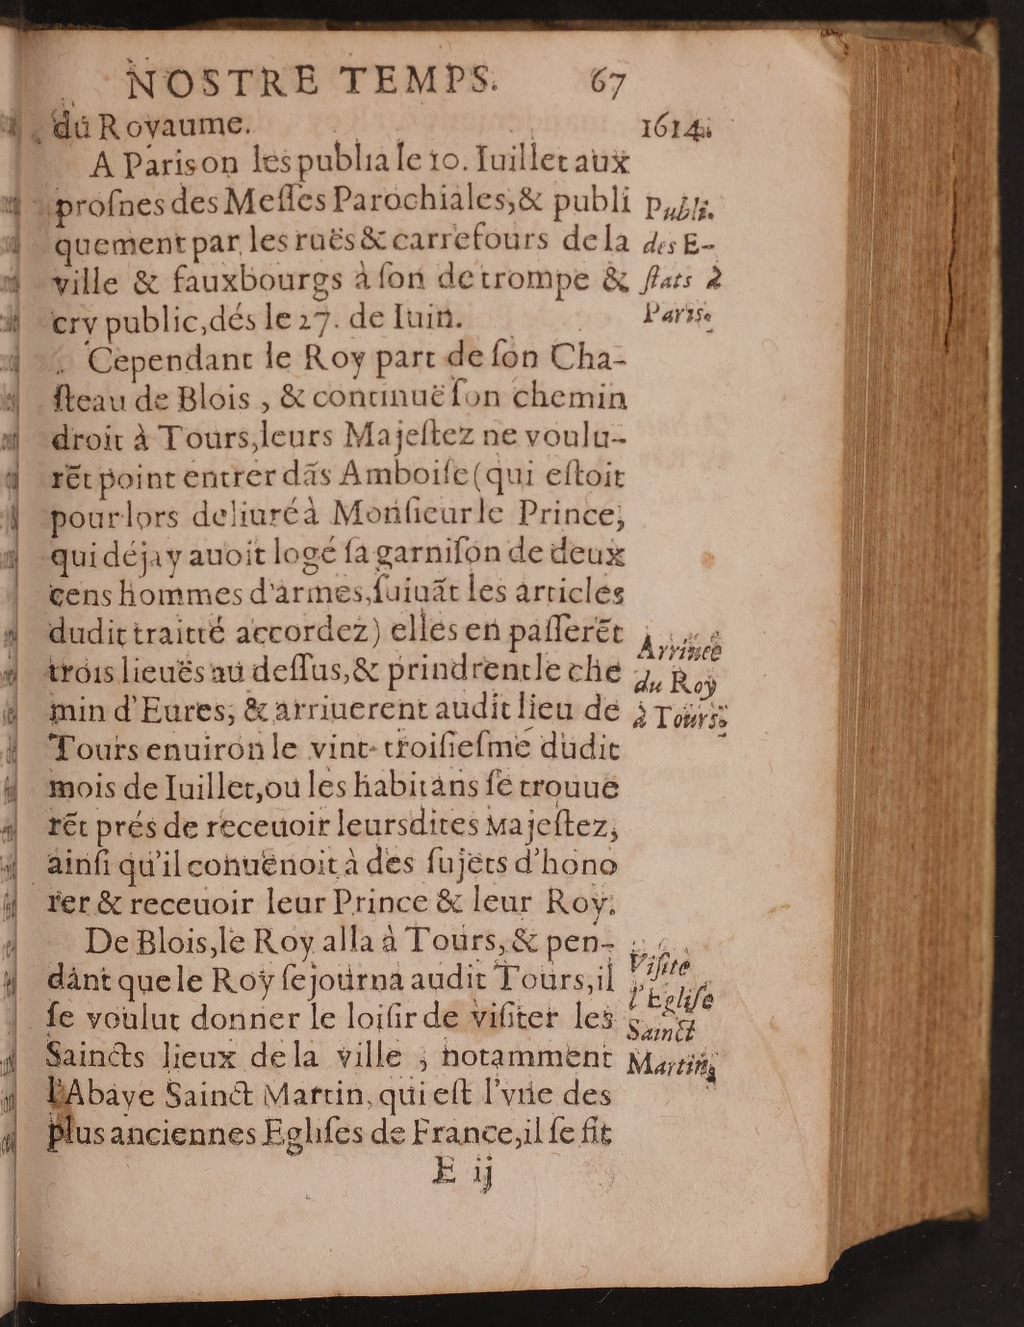 NOSTRE TEMPS. 67
du Royaume. 1614.
A Paris on les publia le 10. Iuillet aux
prosnes des Messes Parochiales, & publi
quement par les ruës & carrefours de la
ville & fauxbourgs à son de trompe &
cry public, dés le 27. de Iuin.
Publi.
des E-
stats à
Paris.
Cependant le Roy part de son Cha-
steau de Blois, & continuë son chemin
droit à Tours, leurs Majestez ne voulu-
rēt point entrer dās Amboise (qui estoit
pour lors deliuré à Monsieur le Prince,
qui déja y auoit logé sa garnison de deux
cens hommes d'armes, suiuāt les articles
dudit traitté accordez) elles en passerēt
trois lieuës au dessus, & prindrent le che
min d'Eures, & arriuerent audit lieu de
Tours enuiron le vint-troisiesme dudit
mois de Iuillet, ou les habitans se trouue
rēt prés de receuoir leursdites Majestez,
ainsi qu'il conuenoit à des sujets d'hono
rer & receuoir leur Prince & leur Roy.
Arriuee
du Roy
à Tours.
De Blois, le Roy alla à Tours, & pen-
dant que le Roy sejourna audit Tours, il
se voulut donner le loisir de visiter les
Saincts lieux de la ville, notamment
l'Abaye Sainct Martin, qui est l'vne des
plus anciennes Eglises de France, il se fit
Visite
l'Eglise
Sainct
Martin,
E ij